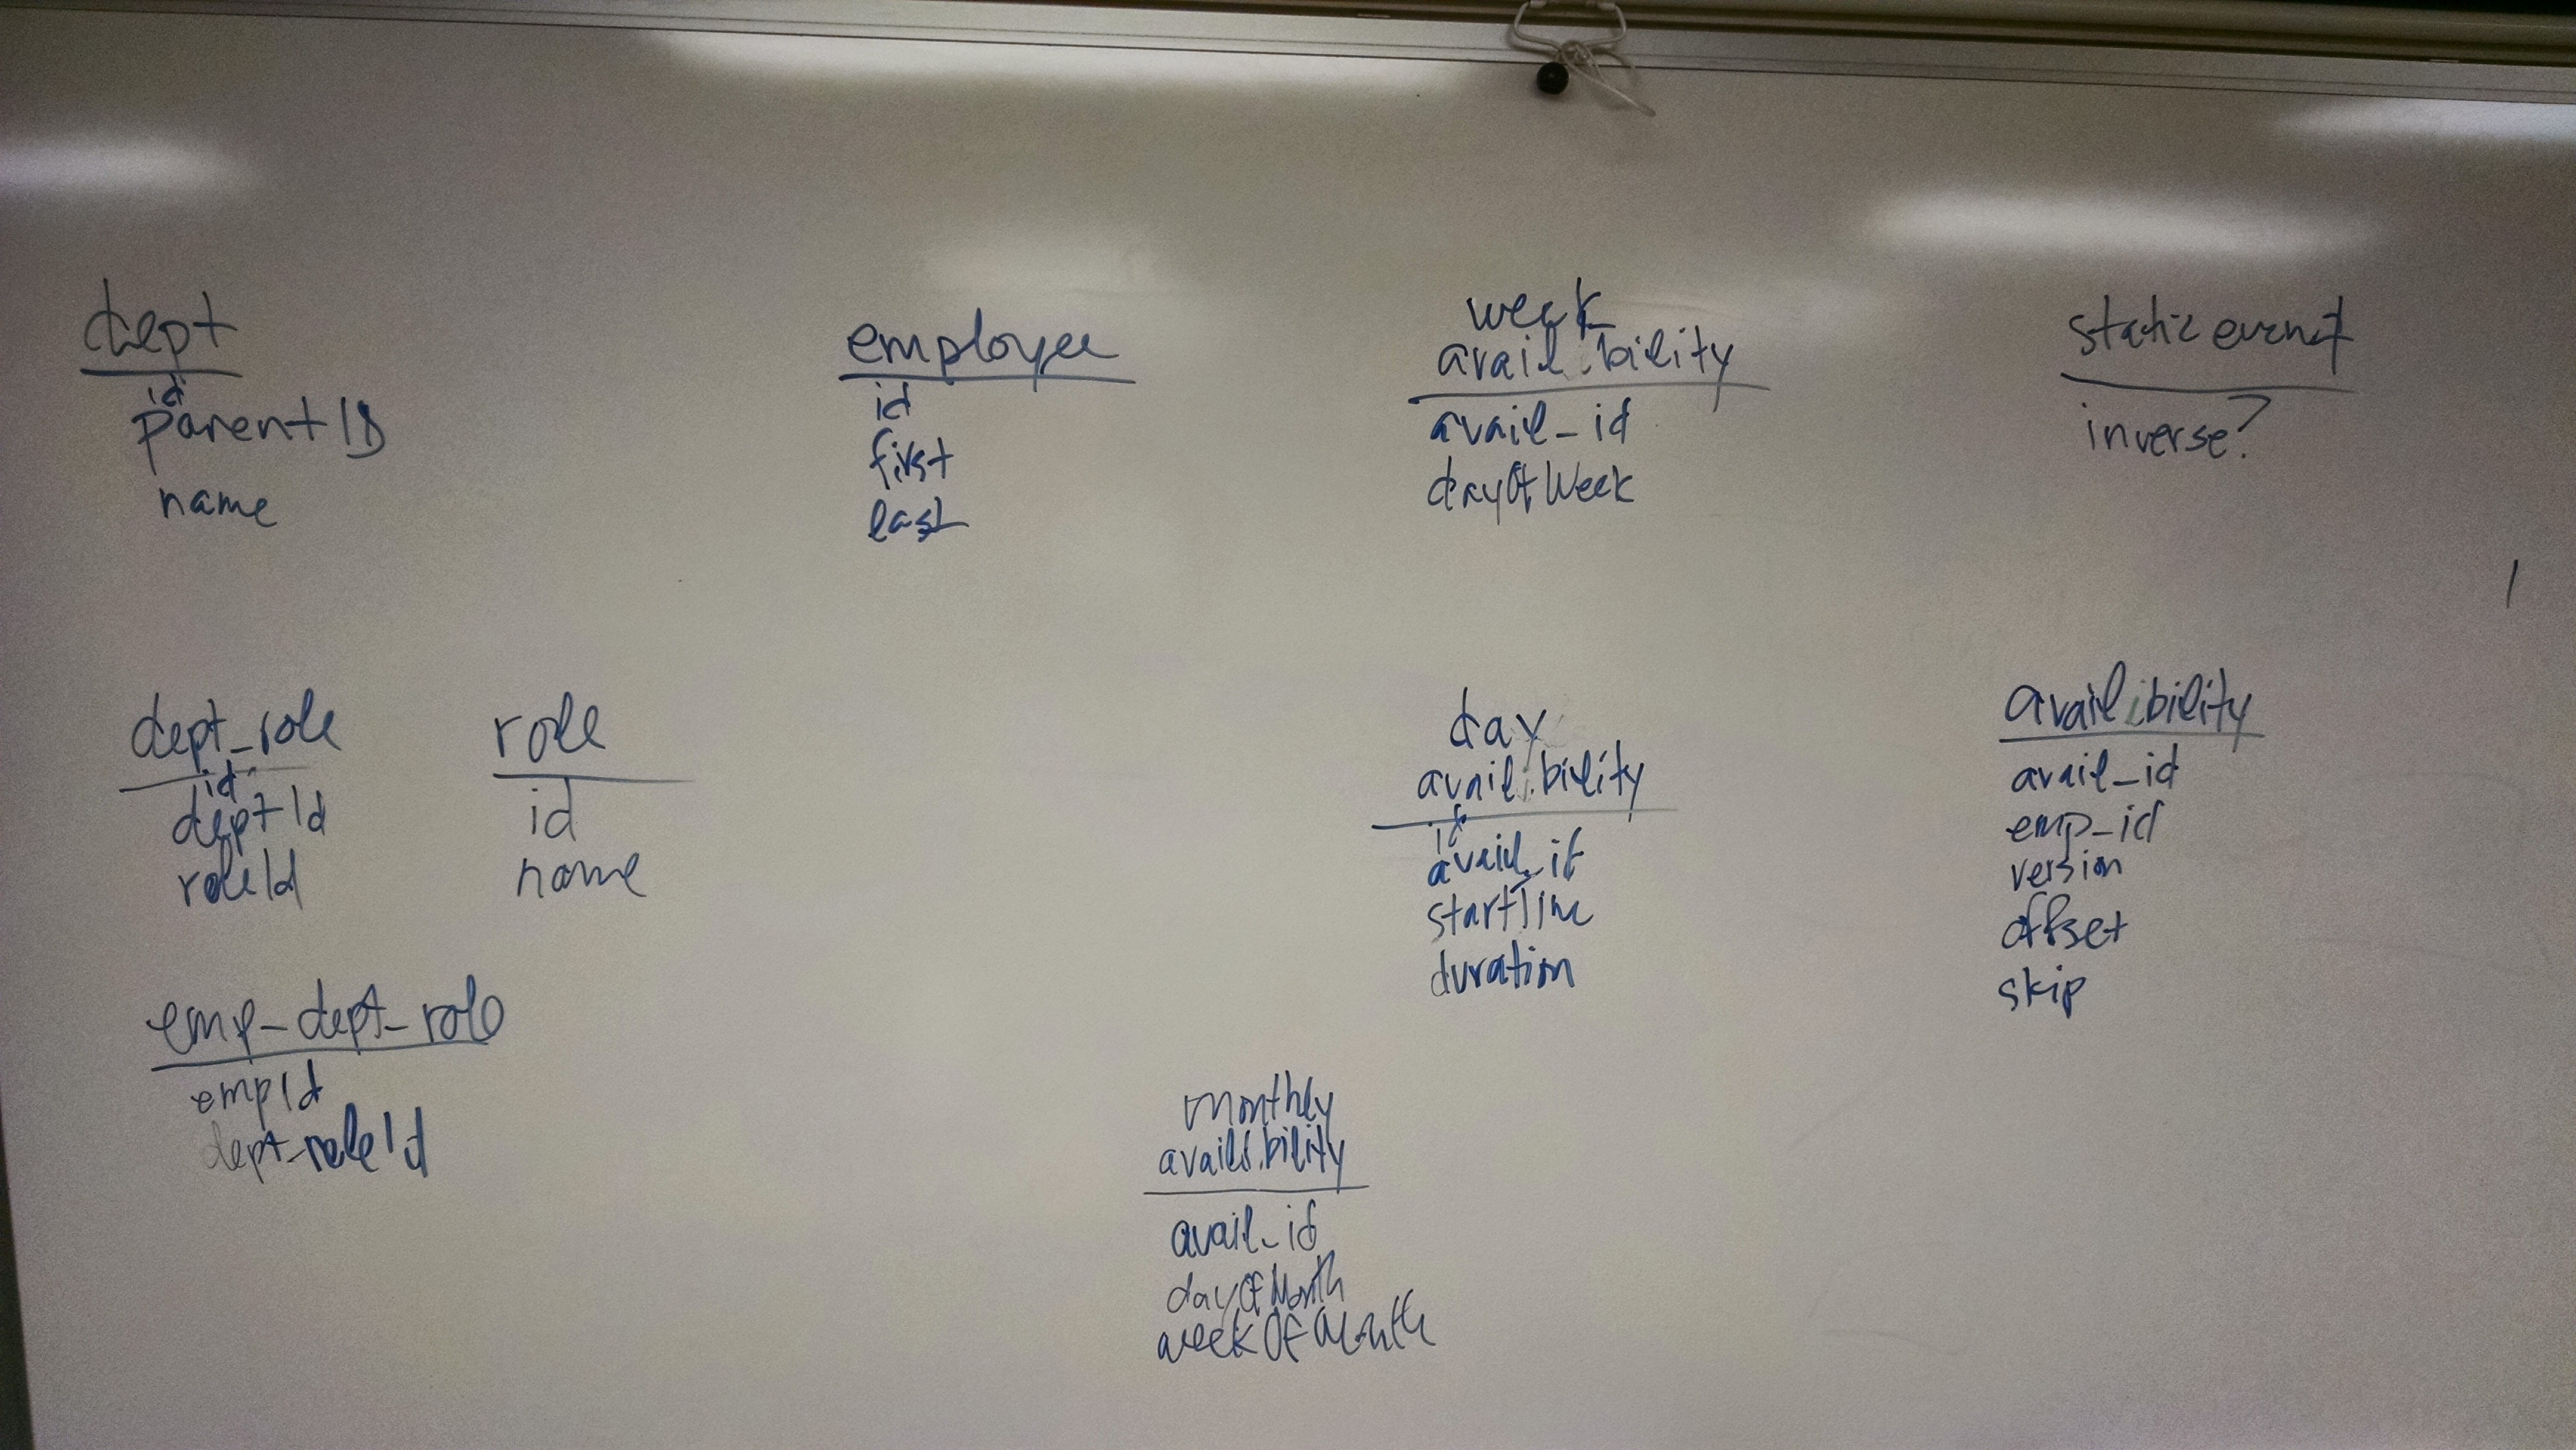 dept
id
parentID
name
employee
id
first
last
week
availibility
avail_id
dayOfWeek
static event
inverse?
dept_role
id
deptId
roleId
role
id
name
day
availibility
id
avail_id
startTime
duration
availibility
avail_id
emp_id
version
offset
skip
emp_dept_role
empId
dept_roleId
monthly
availibility
avail_id
dayOfMonth
weekOfMonth